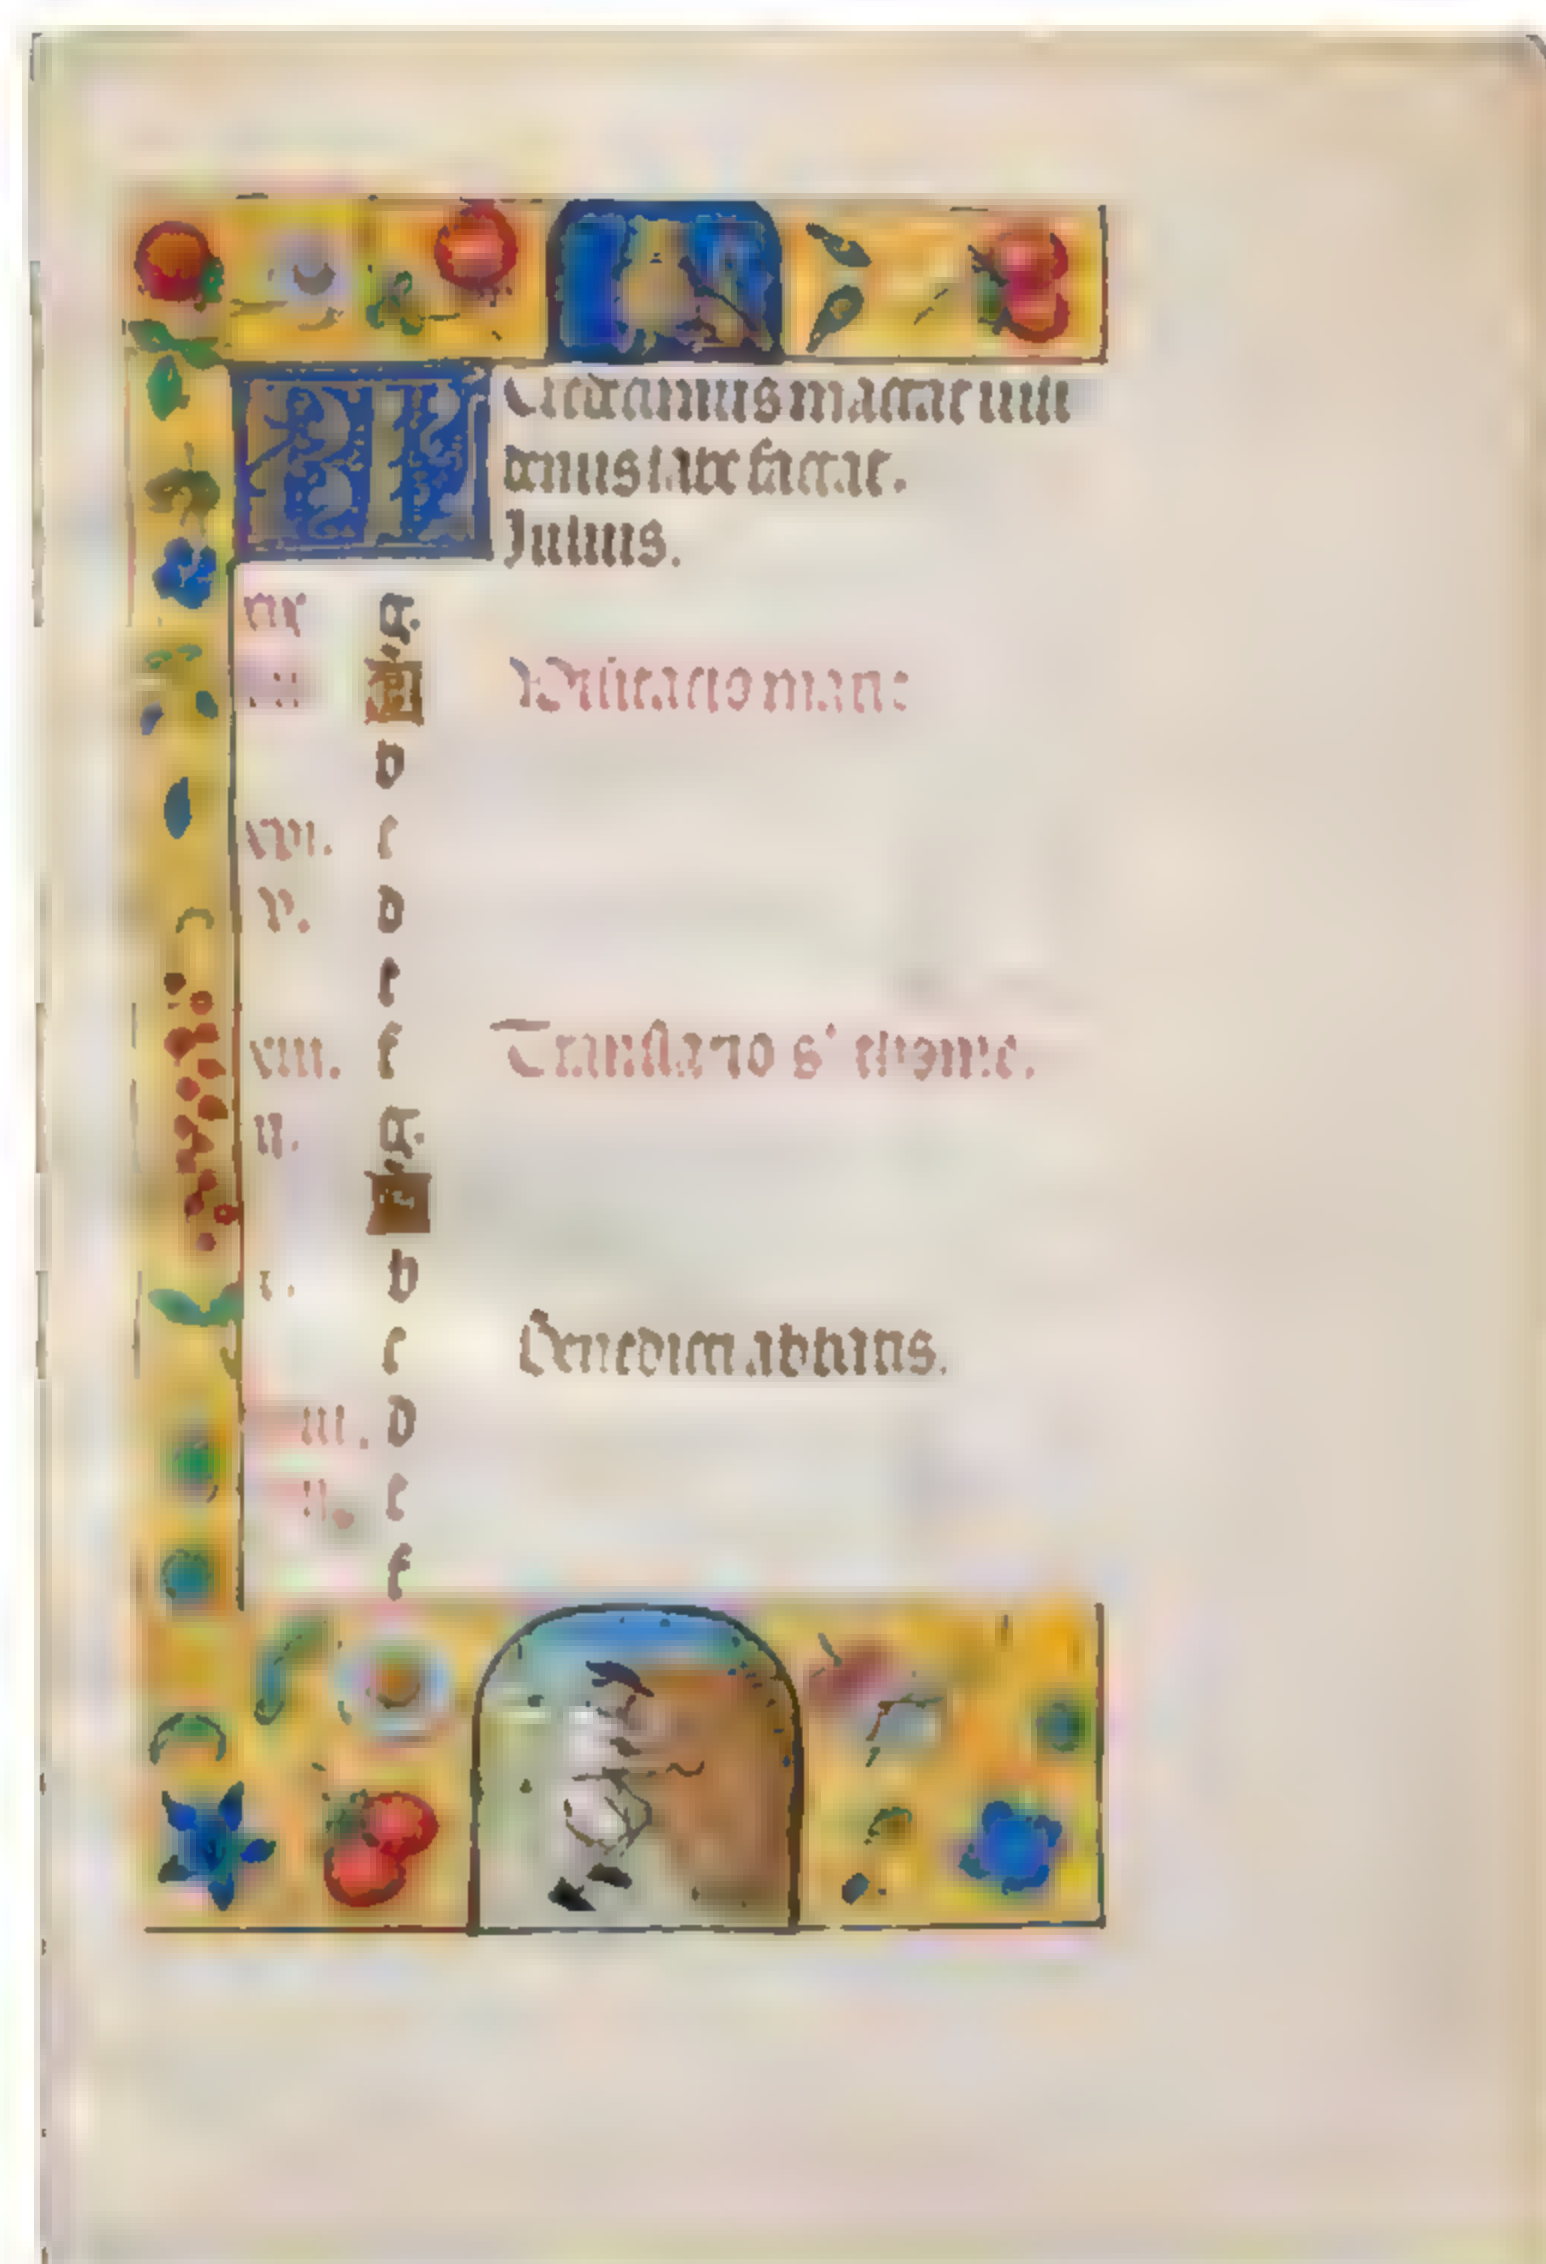 KL Tredecimus mactat iuli
denus labefactat.
Julius.
xix g
viii A Visitacio marie
b
xvi. c
v. d
e
xiii. f Translatio s' thome.
ii. g
A
x. b
c Benedicti abbatis.
d
e
f